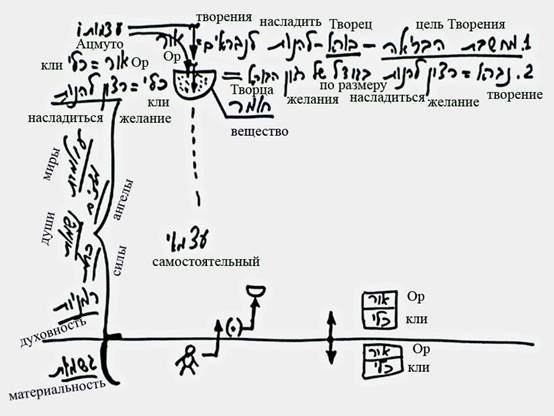 עצמותו
творения насладить Творец цель Творения
Ацмуто
אור
1. מחשבת הבריאה – בורא – להנות לנבראים
Ор
кли אור = כלי Ор
2. נברא = רצון להנות בגודל של רצון הבורא =
Творца желания по размеру насладиться желание творение
כלי = רצון להנות кли
насладиться желание
חומר
вещество
миры עולמות
ангелы
души
силы
עצמאי
самостоятельный
רוחניות
духовность
גשמיות
материальность
אור Ор
כלי кли
אור Ор
כלי кли